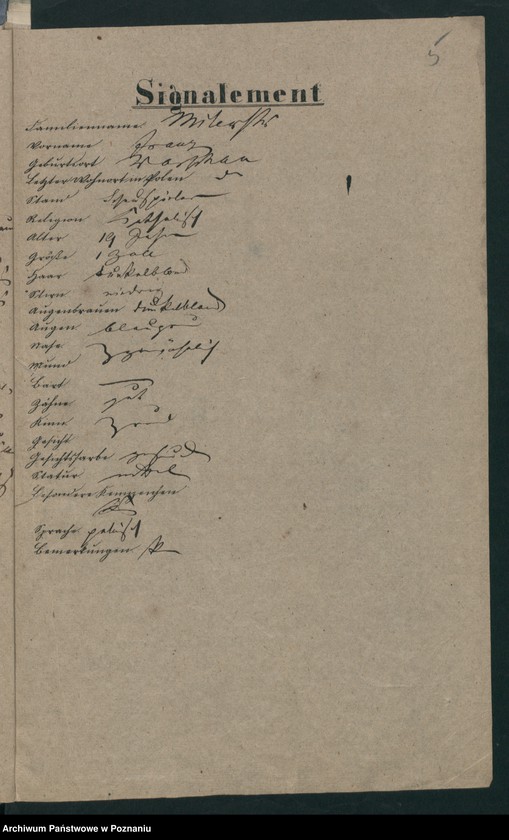 5
Signalement
Familienname Milewski
Vorname Franz
Geburtsort Warschau
Letzter Wohnort in Polen do
Stand Schauspieler
Religion Katholisch
Alter 19 Jahr
Größe 1 Zoll
Haar dunkelblond
Stirn niedrig
Augenbrauen dunkelblond
Augen blaugrau
Nase
Mund gewöhnlich
Bart —
Zähne gut
Kinn rund
Gesicht
Gesichtsfarbe gesund
Statur mittel
Besondere Kennzeichen
Sprache polnisch
Bemerkungen
Archiwum Państwowe w Poznaniu